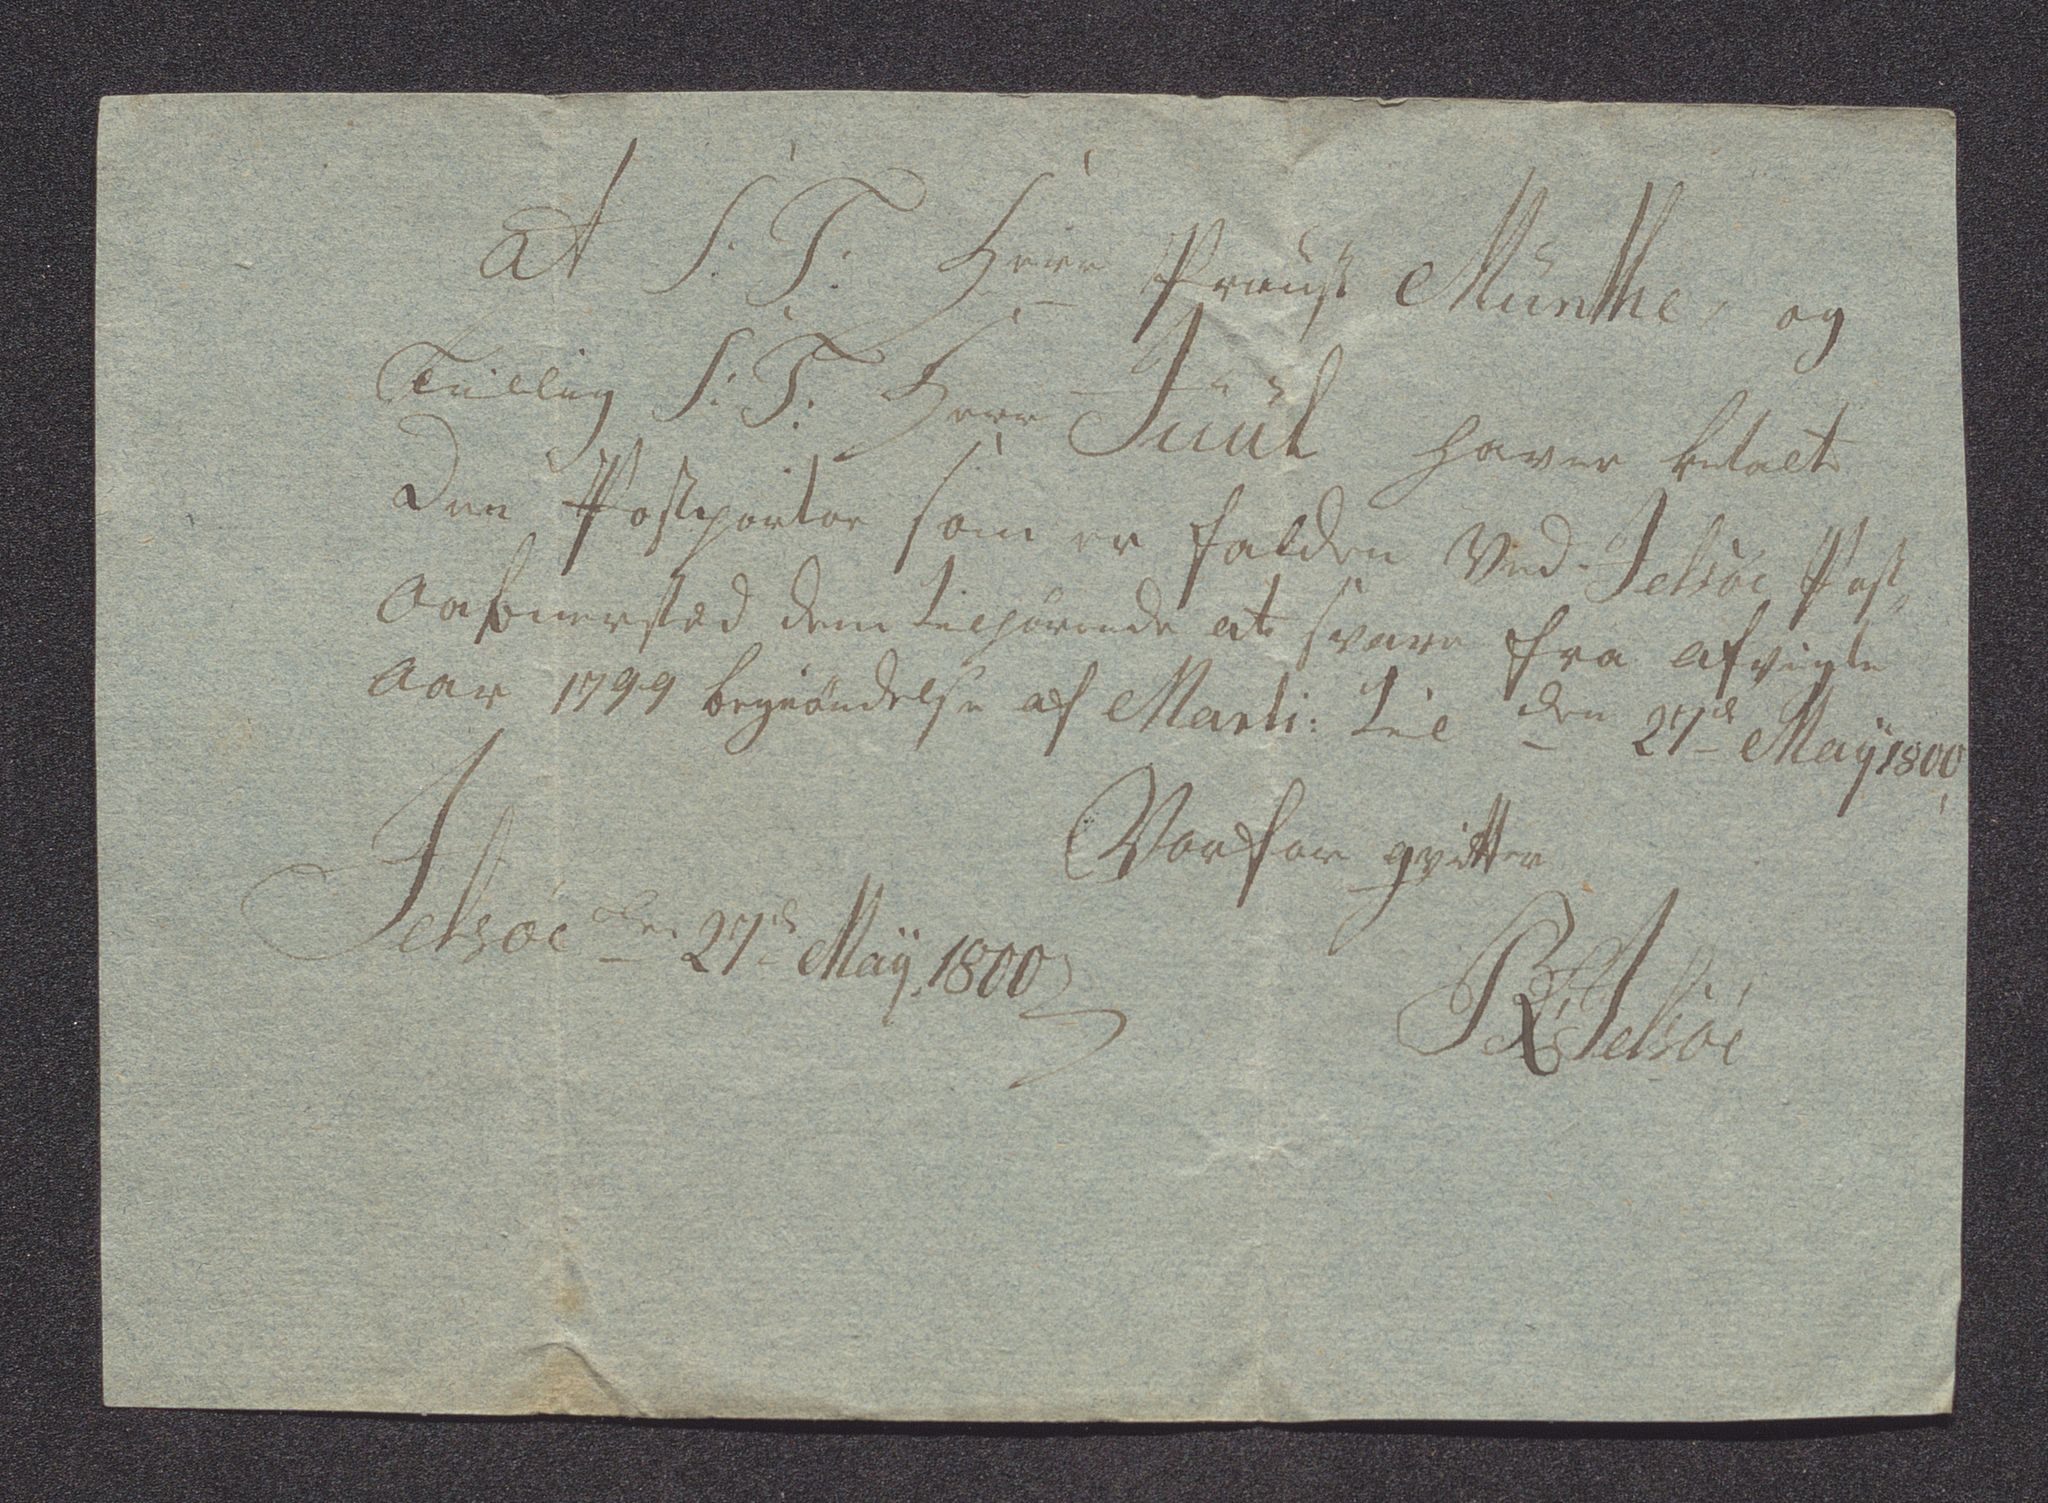 At S: T: Herr Proust Munthe, og
Tillig S: T: Herr Juul haver betalt
den Postportor som er falden Ved Jelsøe Post
Aabnersted dem tilhørende at svare fra afvigte
Aar 1799 begyndelse af Marti: til den 27de Maÿ 1800
Vorfor qvitter
Jelsøe den 27de Maÿ, 1800
R Jelsøe